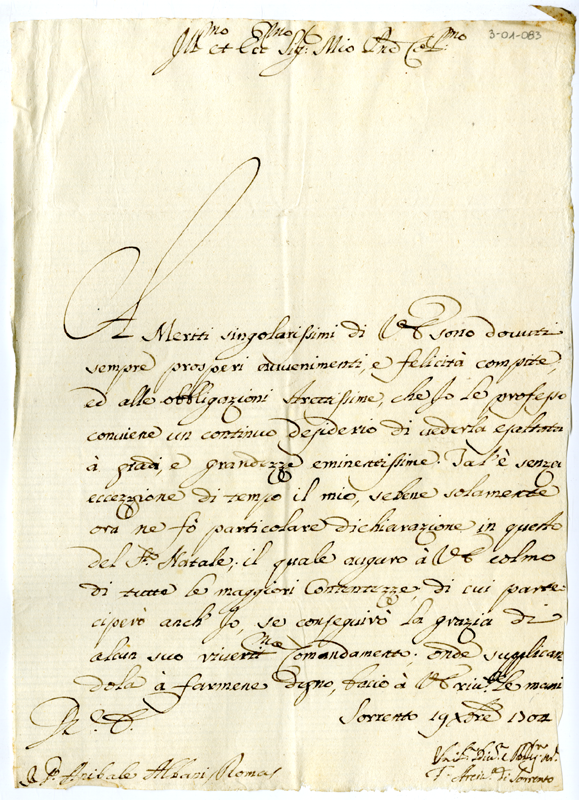 3-01-083
Ill.mo et Ecc.mo Sig.r Mio P.ne Col.mo
A Meriti singolarissimi di V.E. sono dovuti
sempre prosperi avvenimenti, e felicità compite,
ed alle obbligazioni strettissime, che Io le professo
conviene un continuo desiderio di vederla esaltata
à gradi, e grandezze eminentissime. Tal'è senza
eccezzione di tempo il mio, sebene solamente
ora ne fò particolare dichiarazione in questo
del S.to Natale; il quale auguro à V.E. colmo
di tutte le maggiori Contentezze di cui parte-
ciperò anch'Io se conseguirò la grazia di
alcun suo riverit.mo Comandamento; onde supplican
dola à farmene degno, bacio à V.E. riv. le mani
Sorrento 19 Xbre 1704
D. Anibale Albani Roma
di Sorrento